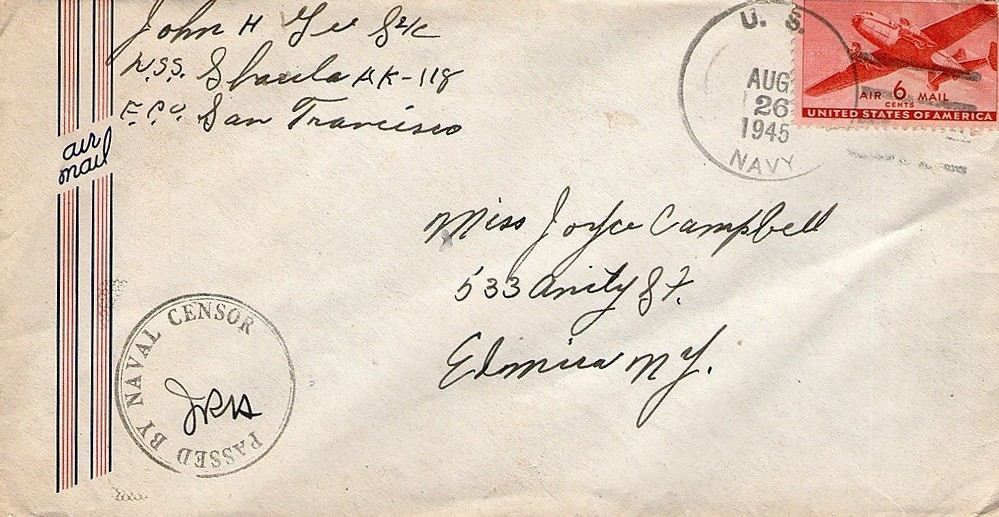 John H S2/c
U.S.S. Shaula AK-118
F.P.O. San Francisco
air
mail
U. S.
AUG
26
1945
NAVY
AIR 6 MAIL
CENTS
UNITED STATES OF AMERICA
Miss Joyce Campbell
533 Amity St.
Elmira N Y.
PASSED BY NAVAL CENSOR
JRH